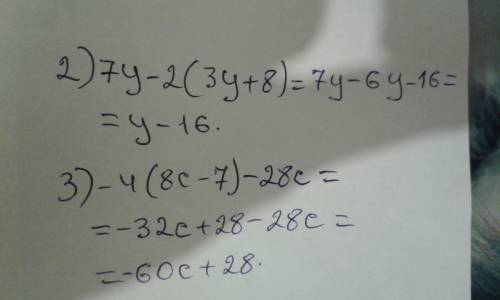 2) 7y-2(3y+8)=7y-6y-16=
=y-16.
3) -4(8c-7)-28c=
=-32c+28-28c=
=-60c+28.